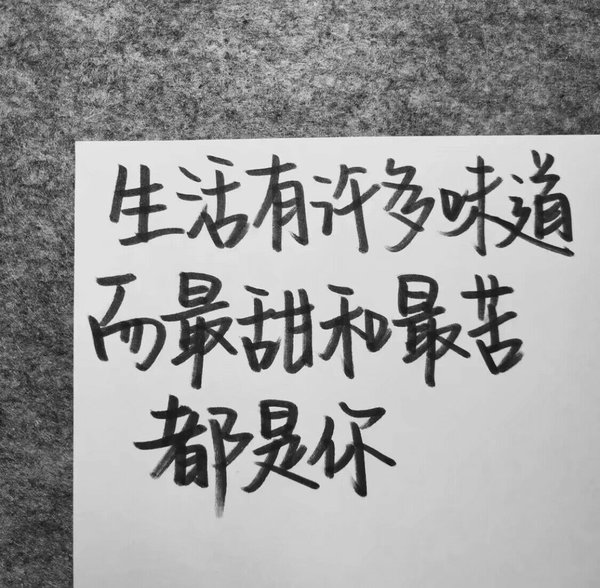 生活有许多味道
而最甜和最苦
都是你